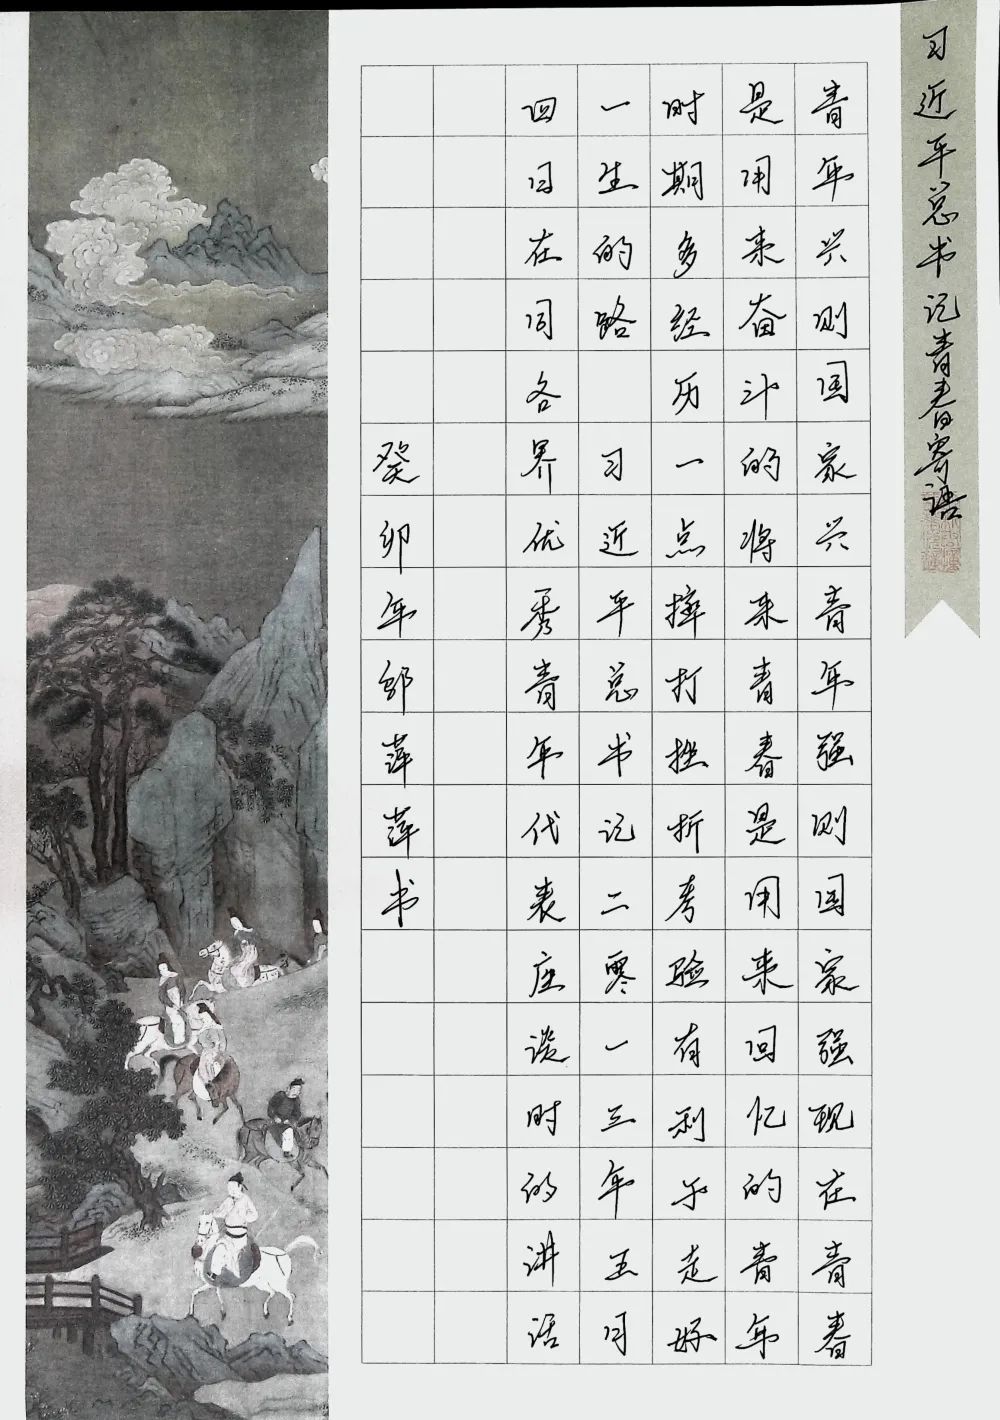 习近平总书记青春寄语
青年兴则国家兴青年强则国家强现在青春
是用来奋斗的将来青春是用来回忆的青年
时期多经历一点摔打挫折考验有利于走好
一生的路 习近平总书记二零一三年五月
四日在同各界优秀青年代表座谈时的讲话
癸卯年 萍萍书